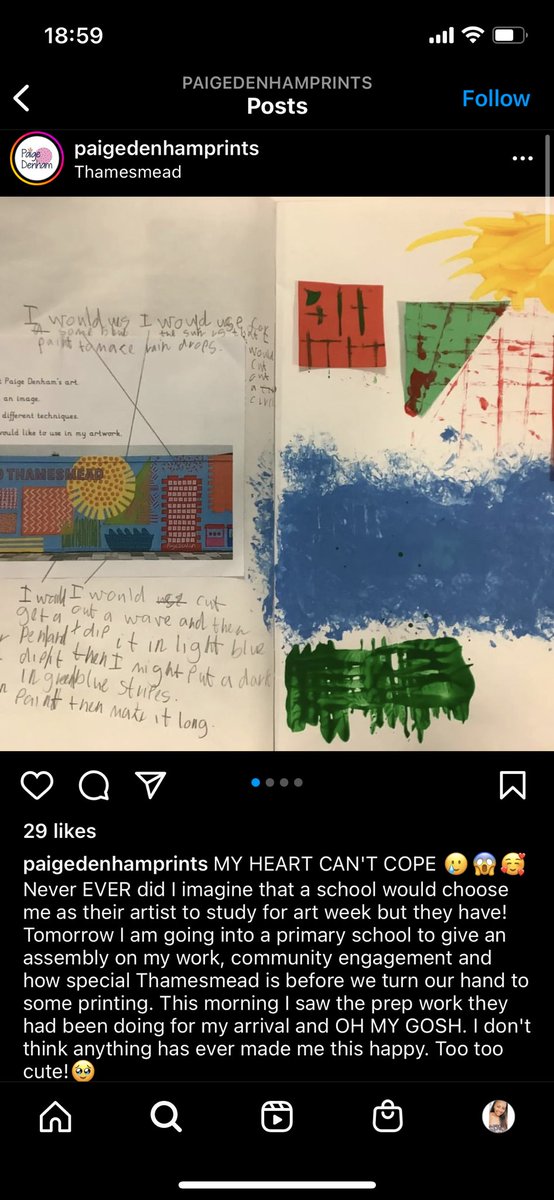 18:59
PAIGEDENHAMPRINTS
Posts
Follow
Paige
Denham
paigedenhamprints
Thamesmead
I would us I would use for
some blue the sun
paint to make rain drops.
would
cut
out
a
t Paige Denham's art.
an image.
different techniques.
vould like to use in my artwork.
O THAMESMEAD
I would I would use cut
get a out a wave and then
dip it in light blue
then I might put a dark
in green blue stripes.
paint then make it long.
29 likes
paigedenhamprints MY HEART CAN'T COPE 🥲😱🥰
Never EVER did I imagine that a school would choose
me as their artist to study for art week but they have!
Tomorrow I am going into a primary school to give an
assembly on my work, community engagement and
how special Thamesmead is before we turn our hand to
some printing. This morning I saw the prep work they
had been doing for my arrival and OH MY GOSH. I don't
think anything has ever made me this happy. Too too
cute!🥹